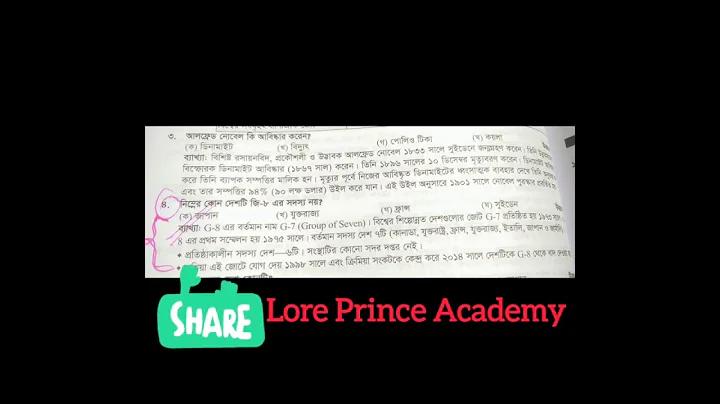 ৩. আলফ্রেড নোবেল কি আবিষ্কার করেন?
(ক) ডিনামাইট (খ) বিদ্যুৎ (গ) পোলিও টিকা (ঘ) কয়লা
ব্যাখ্যা: বিশিষ্ট রসায়নবিদ, প্রকৌশলী ও উদ্ভাবক আলফ্রেড নোবেল ১৮৩৩ সালে সুইডেনে জন্মগ্রহণ করেন। তিনি
বিস্ফোরক ডিনামাইট আবিষ্কার (১৮৬৭ সাল) করেন। তিনি ১৮৯৬ সালের ১০ ডিসেম্বর মৃত্যুবরণ করেন। ডিনামাইট
করে তিনি ব্যাপক সম্পত্তির মালিক হন। মৃত্যুর পূর্বে নিজের আবিষ্কৃত ডিনামাইটের ধ্বংসাত্মক ব্যবহার দেখে তিনি
এবং তার সম্পত্তির ৯৪% (৯০ লক্ষ ডলার) উইল করে যান। এই উইল অনুসারে ১৯০১ সালে নোবেল পুরস্কার
৪. নিম্নের কোন দেশটি জি-৮ এর সদস্য নয়?
(ক) জাপান (খ) যুক্তরাজ্য (গ) ফ্রান্স (ঘ) সুইডেন
ব্যাখ্যা: G-8 এর বর্তমান নাম G-7 (Group of Seven)। বিশ্বের শিল্পোন্নত দেশগুলোর জোট G-7 প্রতিষ্ঠিত হয়
8 এর প্রথম সম্মেলন হয় ১৯৭৫ সালে। বর্তমান সদস্য দেশ ৭টি (কানাডা, যুক্তরাষ্ট্র, ফ্রান্স, যুক্তরাজ্য, ইতালি, জাপান ও
• প্রতিষ্ঠাকালীন সদস্য দেশ—৬টি। সংস্থাটির কোনো সদর দপ্তর নেই।
এই জোটে যোগ দেয় ১৯৯৮ সালে এবং ক্রিমিয়া সংকটকে কেন্দ্র করে ২০১৪ সালে দেশটিকে G-8 থেকে বাদ
SHARE
Lore Prince Academy